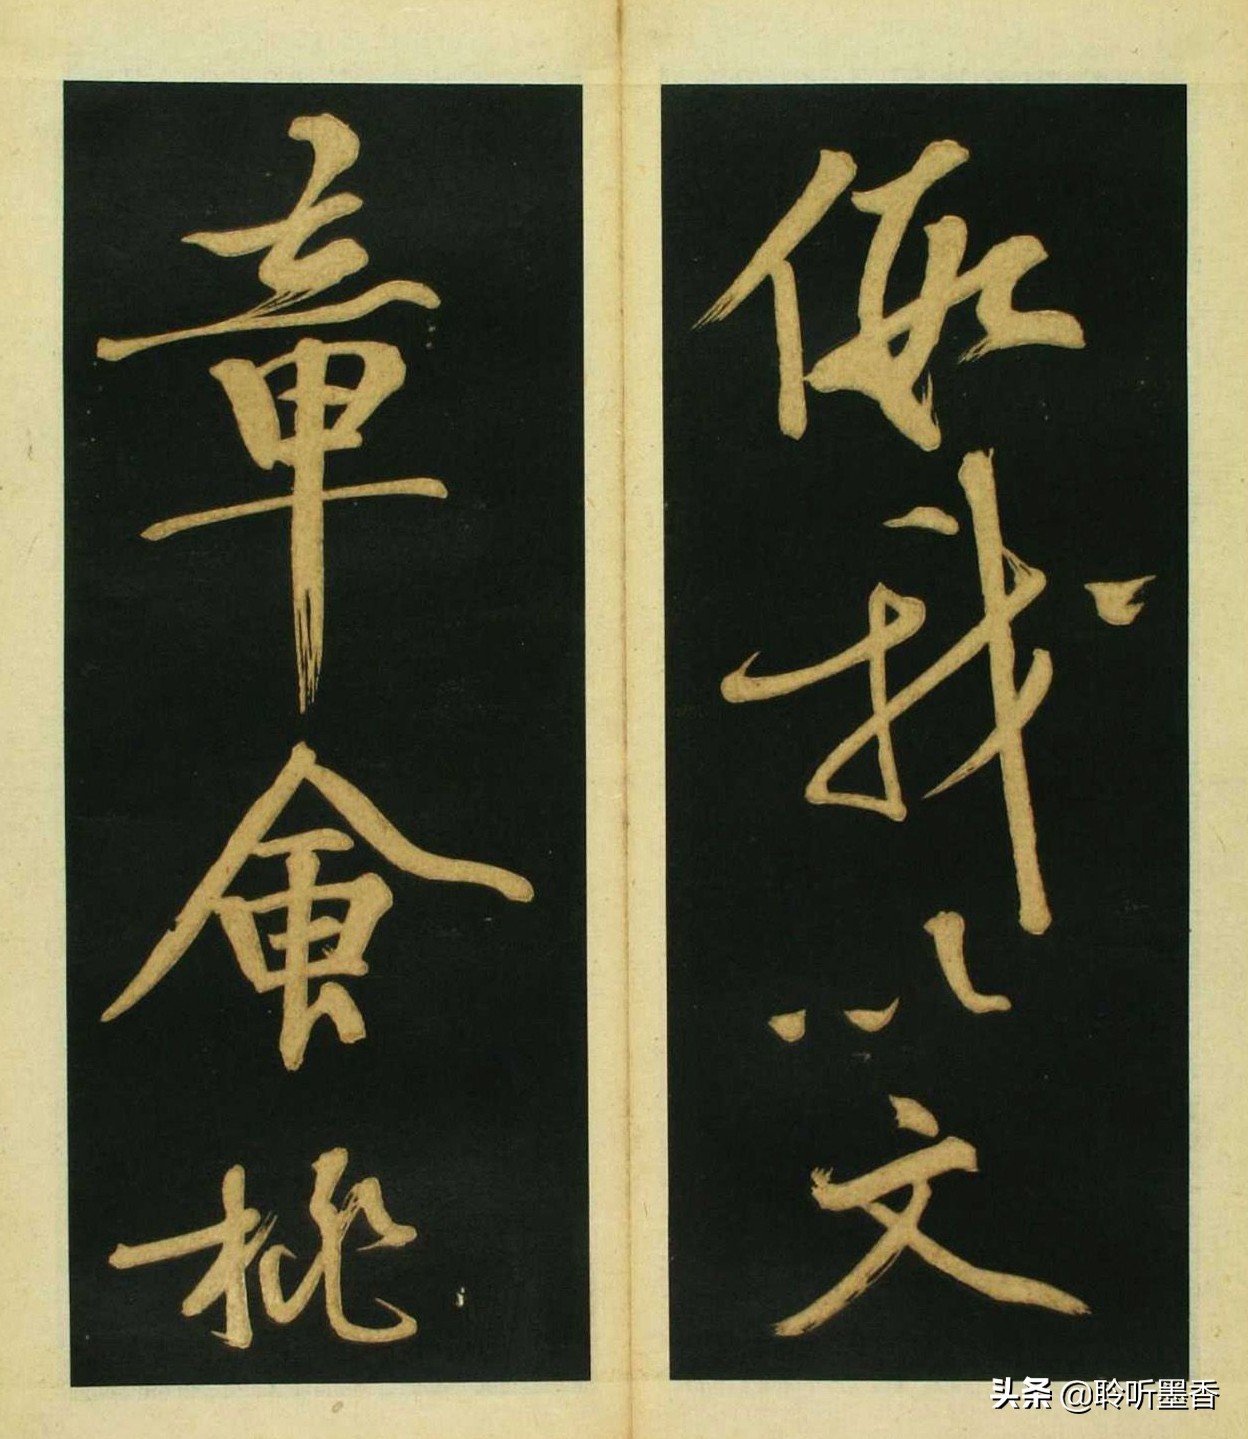 假我以文
章會桃
头条 @聆听墨香